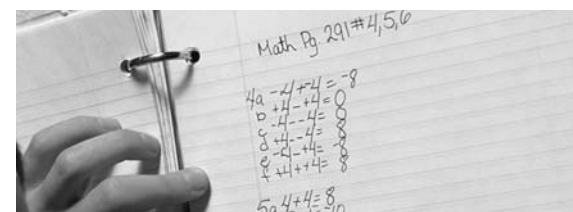 Math Pg. 291 #4,5,6
4a -4+-4=-8
b +4-+4=0
c -4--4=0
d +4--4=8
e -4-+4=-8
f +4++4=8
5a 4+4=8